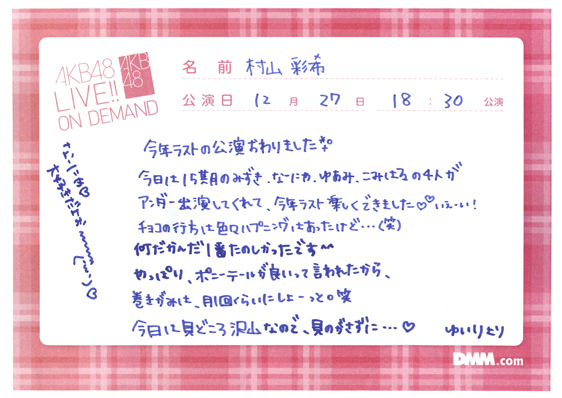 AKB48
LIVE!!
ON DEMAND
AKB
48
名前 村山 彩希
公演日 12 月 27 日 18 : 30 公演
今年ラストの公演おわりました
今日は15期のみずき、なーにゃ、ゆあみ、こみはるの4人が
アンダー出演してくれて、今年ラスト楽しくできました♡♡いえーい!
チョコの行方は色々ハプニングはあったけど…(笑)
何だかんだ1番たのしかったです〜
やっぱり、ポニーテールが良いって言われたから、
巻きがみは、月1回くらいにしよーっと。笑
今日は見どころ沢山なので、見のがさずに…♡ ゆいりより
なーにゃ♡
大好きだよぉ
DMM.com